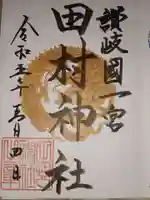 讃岐國一宮
田村神社
令和五年五月四日